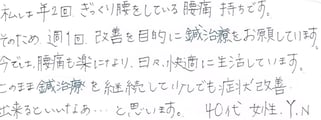 私は年2回、ぎっくり腰をしている腰痛持ちです。
そのため週1回、改善を目的に鍼治療をお願いしています。
今では、腰痛も楽になり、日々、快適に生活しています。
このまま鍼治療を継続して少しでも症状改善
出来るといいなあ…と思います。 40代 女性. Y.N